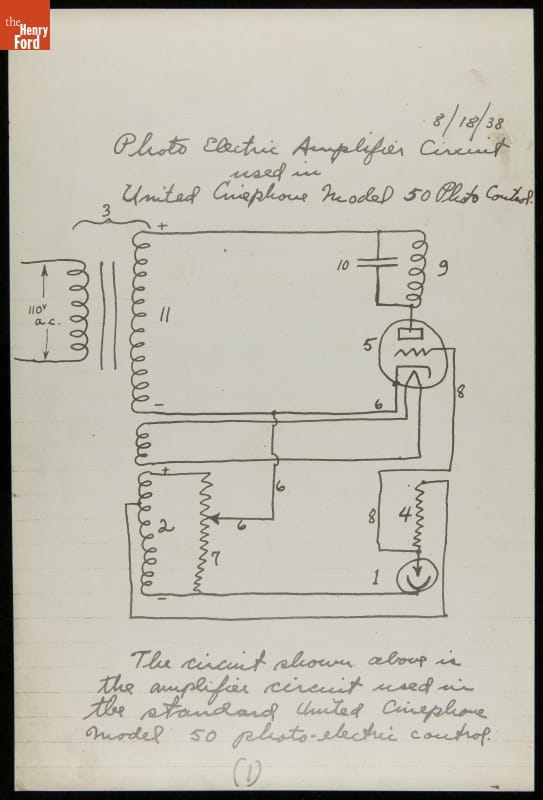 the
Henry
Ford
8/18/38
Photo Electric Amplifier Circuit
used in
United Cinephone Model 50 Photo Control.
3
+
110v
a.c.
11
10
9
5
-
6
8
+
2
6
6
7
8
4
1
-
The circuit shown above is
the amplifier circuit used in
the standard United Cinephone
Model 50 photo-electric control.
(1)